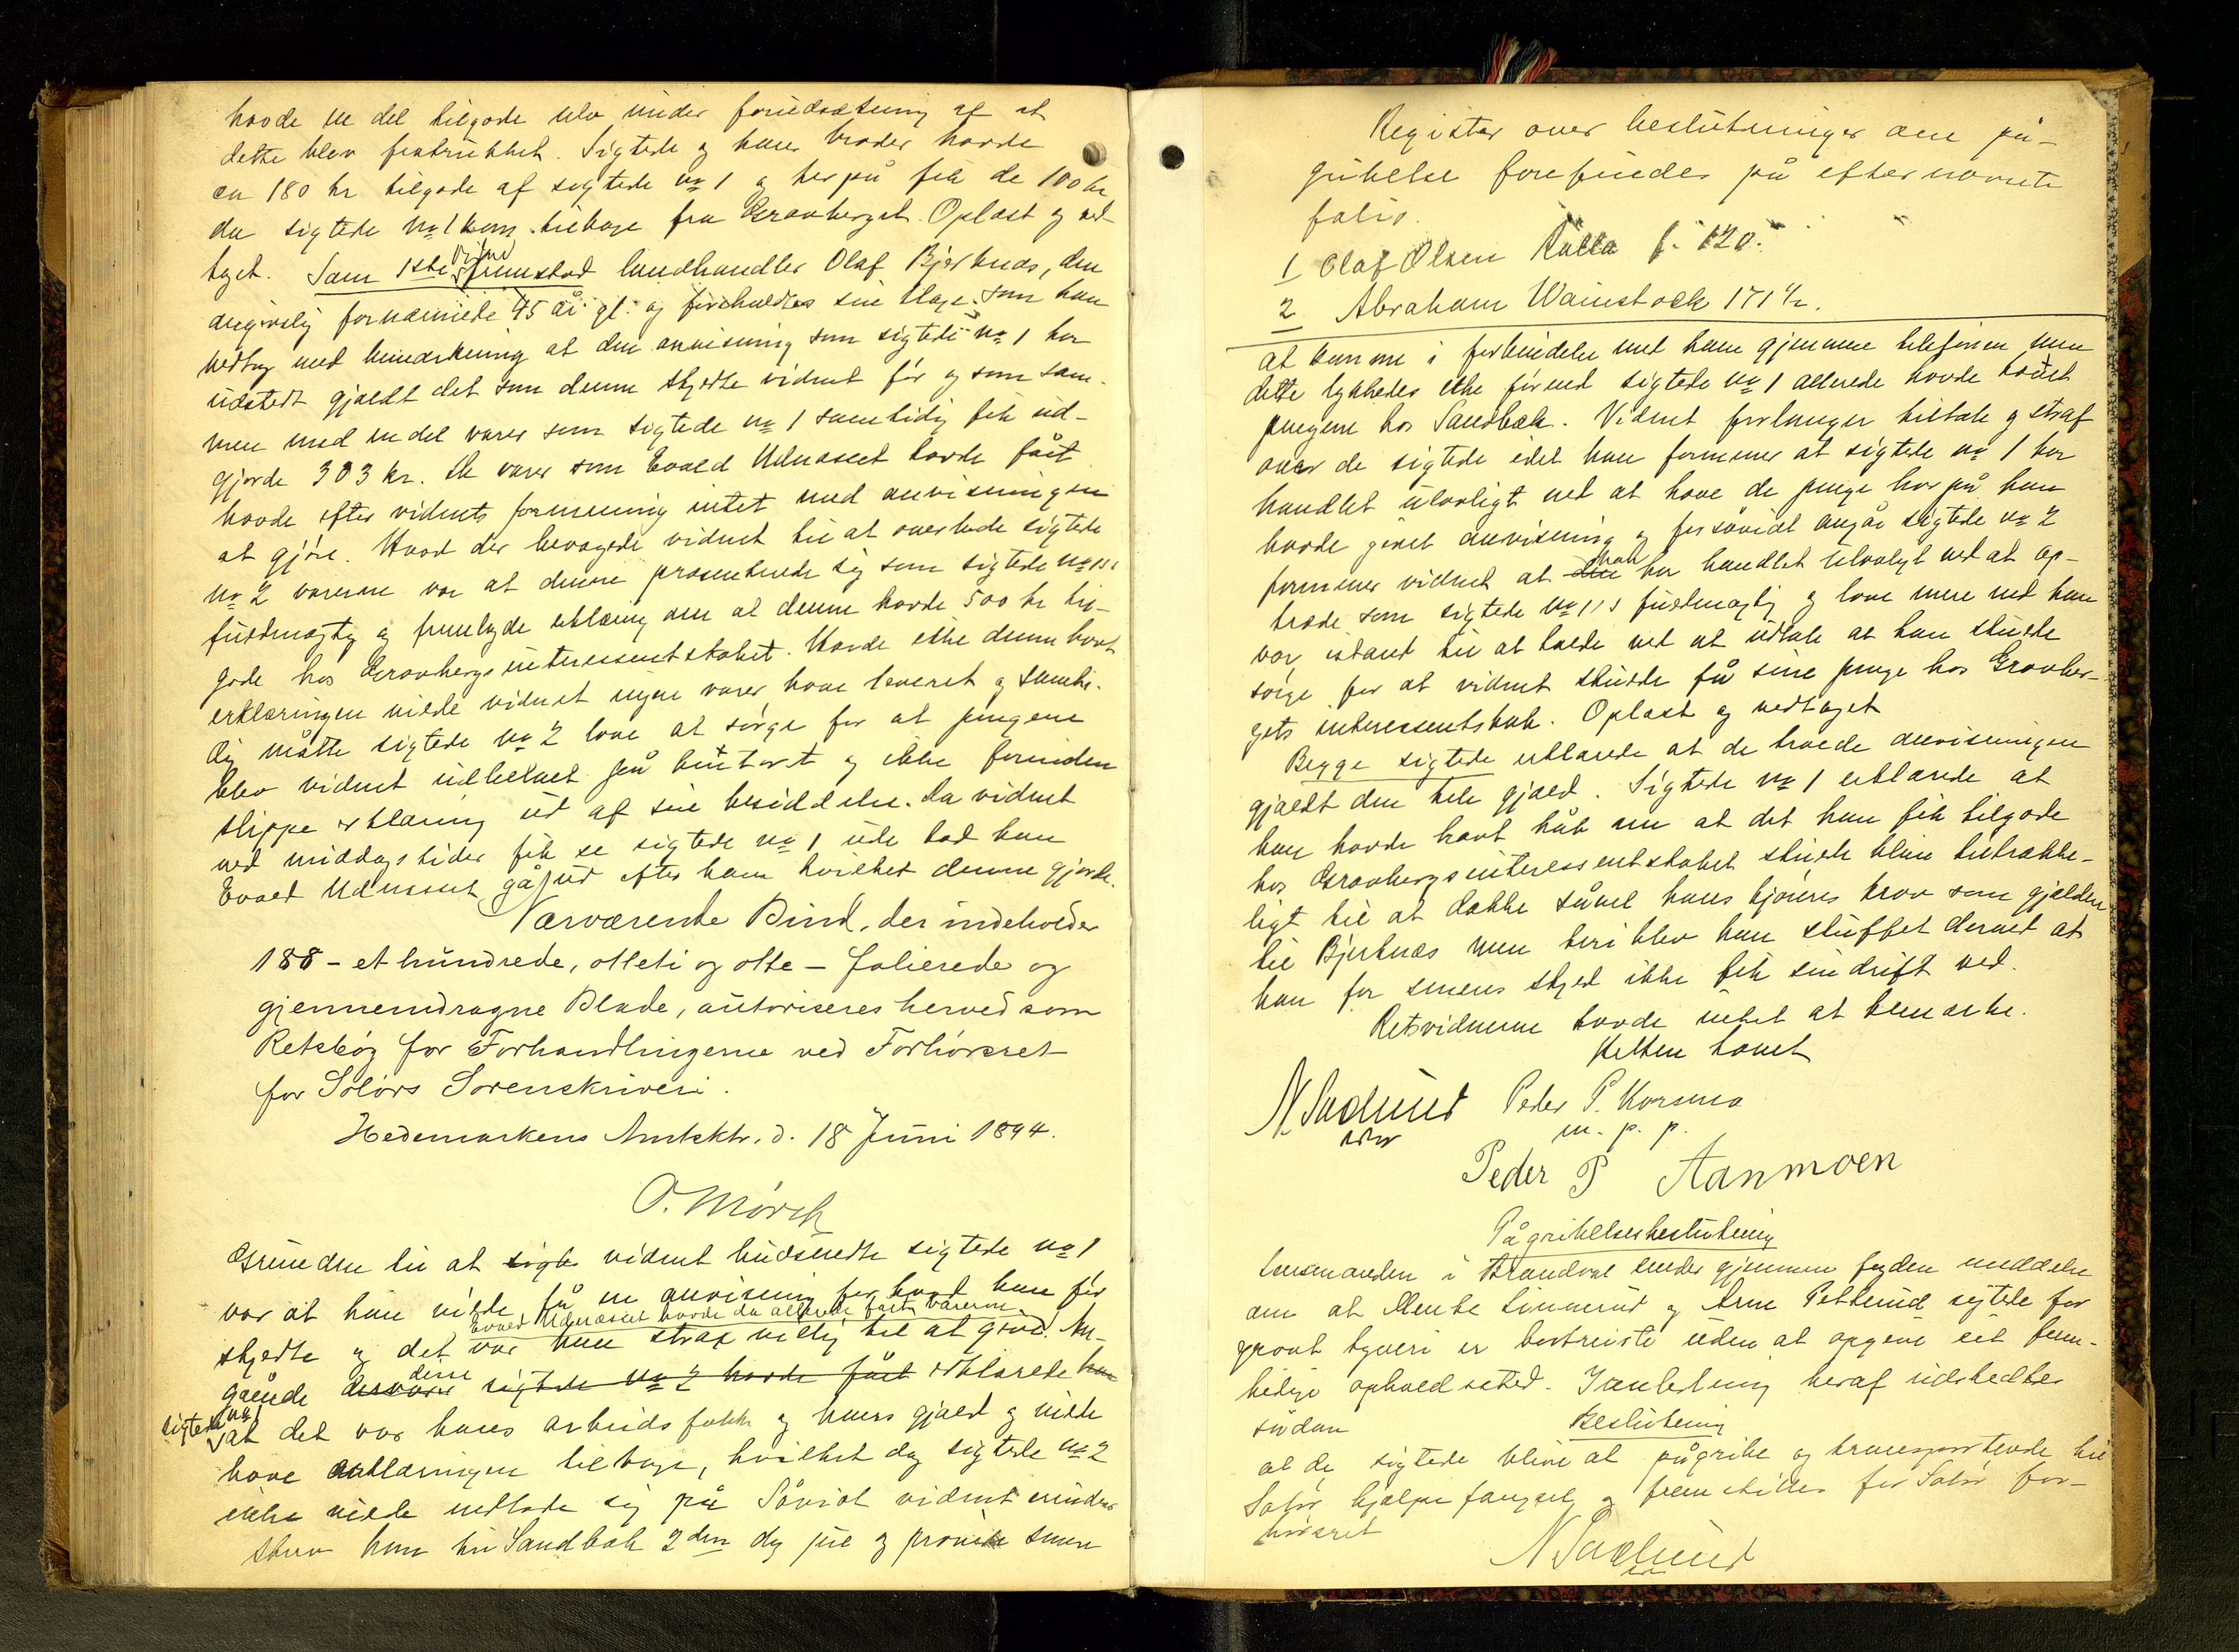 havde en del tilgode selv under forudsætning af at
dette blev fratrukket. Sigtede og hans broder havde
ca 180 kr tilgode af sigtede No 1 og herpå fik de 100 kr
da sigtede No 1 kom tilbage fra Gravberget. Oplæst og ved-
taget. Som 1ste Vidne fremstod landhandler Olaf Bjerknæs, den
angivelig fornærmede 45 år gl. og foreholdtes sin klage som han
vedtog med bemærkning at den anvisning som sigtede No 1 har
udstedt gjældt det som denne skyldte vidnet før og som sam-
men med en del varer som sigtede No 1 samtidig fik ud-
gjorde 303 kr. De varer som Evald Udnæseet havde fåit
havde efter vidnets formening intet med anvisningen
at gjøre. Hvad der bevægede vidnet til at overlade sigtede
No 2 varerne var at denne præsenterede sig som sigtede No 1s
fuldmægtig og fremlagde erklæring om at denne havde 500 kr til-
gode hos Gravbergsinteressentskabet. Havde ikke denne havt
erklæringen vilde vidnet ingen varer have leveret og samti-
dig måtte sigtede No 2 love at sørge for at pengene
blev vidnet udbetalt på kontoret og ikke forinden
slippe erklæring ud af sin besiddelse. Da vidnet
ved middagstider fik se sigtede No 1 ude bad han
Evald Udnæseet gå ud efter ham hvilket denne gjorde.
Nærværende Bind, der indeholder
188 - et hundrede, otteti og otte - folierede og
gjennemdragne Blade, autoriseres herved som
Retsbog for Forhandlingerne ved Forhørsret
for Solørs Sorenskriveri.
Hedemarkens Amtsktr. d. 18 Juni 1894.
O. Mörch
Grunden til at sigte vidnet budsendte sigtede No 1
var at han vilde få en anvisning for hvad han før
Evald Udnæseet havde da allerede fåit varerne
skyldte og det var han strax villig til at give. An-
gående desværre denne sigtede No 2 havde fåit erklærede han
sigtede No 1 at det var hans arbeidsfolk og hans gjæld og vilde
have erklæringen tilbage, hvilket dog sigtede No 2
ikke vilde indlade sig på. Såvidt vidnet mindes
skrev ham til Sandbæk 2den dag jul og prøvede samme
Register over beslutninger om på-
gribelse forefindes på efternævnte
folio.
1 Olaf Olsen Kulta f. 120.
2 Abraham Wainstock 171 1/2.
at komme i forbindelse med ham gjennem telefonen men
dette lykkedes ikke førend sigtede No 1 allerede havde hævet
pengene hos Sandbæk. Vidnet forlanger tiltale og straf
over de sigtede idet han formener at sigtede No 1 har
handlet ulovligt ved at hæve de penge hvorpå han
havde givet anvisning og forsåvidt angår sigtede No 2
formener vidnet at den han har handlet ulovligt ved at op-
træde som sigtede No 1s fuldmægtig og love mere end han
var istand til at holde ved at udtale at han skulde
sørge for at vidnet skulde få sine penge hos Gravber-
gets interessentskab. Oplæst og vedtaget
Begge sigtede erklærede at de troede anvisningen
gjældt den hele gjæld. Sigtede No 1 erklærede at
han havde havt håb om at det han fik tilgode
hos Gravbergsinteressentskabet skulde blive tilstrække-
ligt til at dække såvel hans kjøreres krav som gjælden
til Bjerknæs men heri blev han skuffet derved at
han for sneens skyld ikke fik sin drift ved.
Retsvidnerne havde intet at bemærke.
Retten hævet
N Sædlund Peder P. Korsmo
m. p. p.
Peder P Aanmoen
Pågribelsesbeslutning
Lensmanden i Brandval sender gjennem fogden meddelse
om at Mente Linnerud og Arne Pettrud sigtede for
grovt tyveri er bortreiste uden at opgive sit frem-
tidige opholdssted. I anledning heraf udstedtes
sådan
Beslutning
at de sigtede blive at pågribe og transportere til
Solør hjælpefængsel og fremstilles for Solør for-
hørsret
N Sædlund